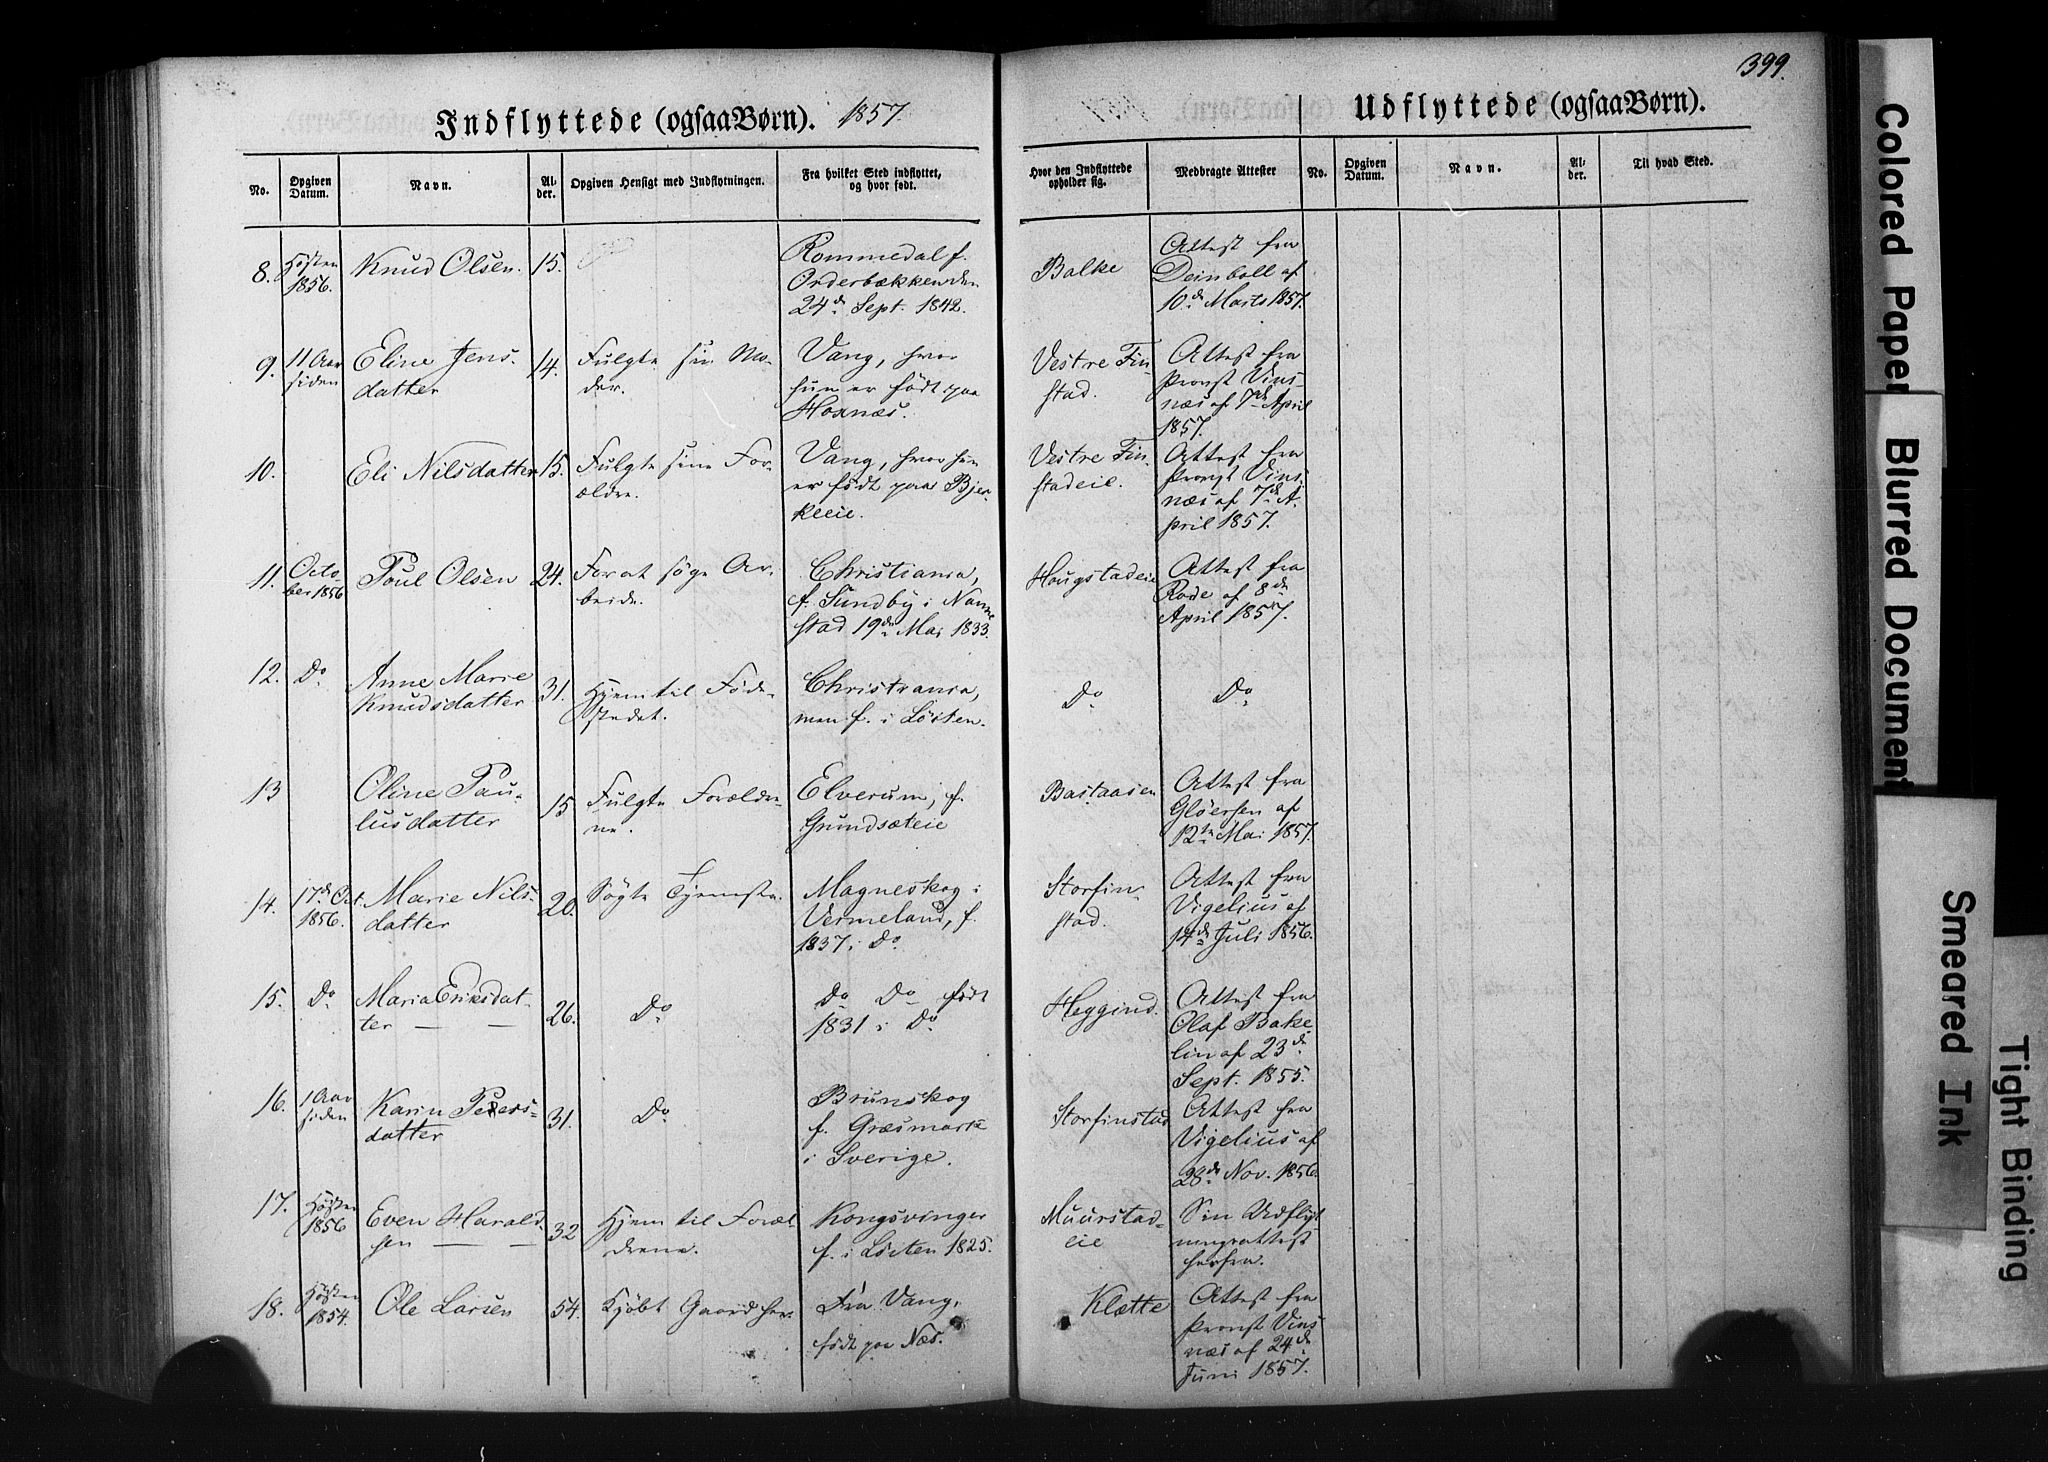 399.
Indflyttede (ogsaa Børn). 1857
Udflyttede (ogsaa Børn).
No.
Opgiven Datum.
Navn.
Al-der.
Opgiven Hensigt med Indflytningen.
Fra hvilket Sted indflyttet, og hvor født.
Hvor den Indflyttede opholder sig.
Medbragte Attester
No.
Opgiven Datum.
Navn.
Al-der.
Til hvad Sted.
8. Høsten 1856. Knud Olsen. 15.
Rommedal f.
Orderbækken den
24d. Sept. 1842.
Balke
Attest fra
Deinboll af
10d. Marts 1857.
9. 11 Aar siden
Eline Jens-
datter
14.
Fulgte sin Mo-
der.
Vang, hvor
hun er født paa
Hosnæs.
Vestre Fin-
stad.
Attest fra
Provst Vins-
næs af 7de April
1857.
10. Eli Nilsdatter 15.
Fulgte sine For-
ældre.
Vang, hvor hun
er født paa Bjer-
keeie.
Vestre Fin-
stadeie.
Attest fra
Provst Vins-
næs af 7de A-
pril 1857.
11. Octo-
ber 1856
Poul Olsen 24.
For at søge Ar-
beide.
Christiania,
f. Sundby i Nanne-
stad 19de Mai 1833.
Hougstadeie
Attest fra
Rode af 8de
April 1857.
12. Do
Anne Marie
Knudsdatter
31.
Hjem til Føde-
stedet.
Christiania,
men f. i Løiten.
Do
Do
13
Oline Pau-
lusdatter
15
Fulgte Forældre-
ne.
Elverum, f.
Grundsæteie
Bastaasen
Attest fra
Gløersen af
12te Mai 1857.
14. 17de Oct. 1856.
Marie Nils-
datter
20.
Søgte Tjeneste.
Magneskog i
Vermeland, f.
1837 i Do
Storfin-
stad.
Attest fra
Vigelius af
14de Juli 1856.
15. Do
Maria Eriksdat-
ter
26.
Do
Do Do født
1831 i Do
Heggind.
Attest fra
Olaf Bake-
lin af 23de
Sept. 1855.
16. 1 Aar siden
Karin Peters-
datter
31.
Do
Brunskog
f. Græsmark
i Sverige.
Storfinstad
Attest fra
Vigelius af
28de Nov. 1856.
17. Høsten 1856
Even Harald-
sen
32
Hjem til Foræl-
drene.
Kongsvinger
f. i Løiten 1825.
Muurstad-
eie
Sin Udflyt-
ningsattest
herfra.
18. Høsten 1854.
Ole Larsen 54.
Kjøbt Gaard her.
Fra Vang,
født paa Næs.
Klætte
Attest fra
Provst Vins-
næs af 24de
Juni 1857.
Colored Paper
Blurred Document
Smeared Ink
Tight Binding